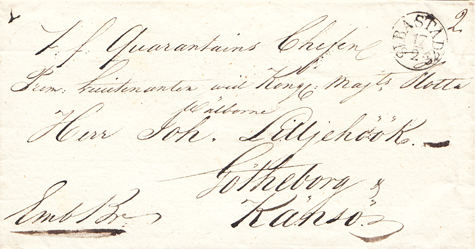 2
BÅSTAD
T. f. Quarantains Chefen
Prem. Lieutenanten wid Kongl. Majts Flotta
Wälborne
Herr Joh. Lilljehöök.
Götheborg &
Känsö.
Emb Br